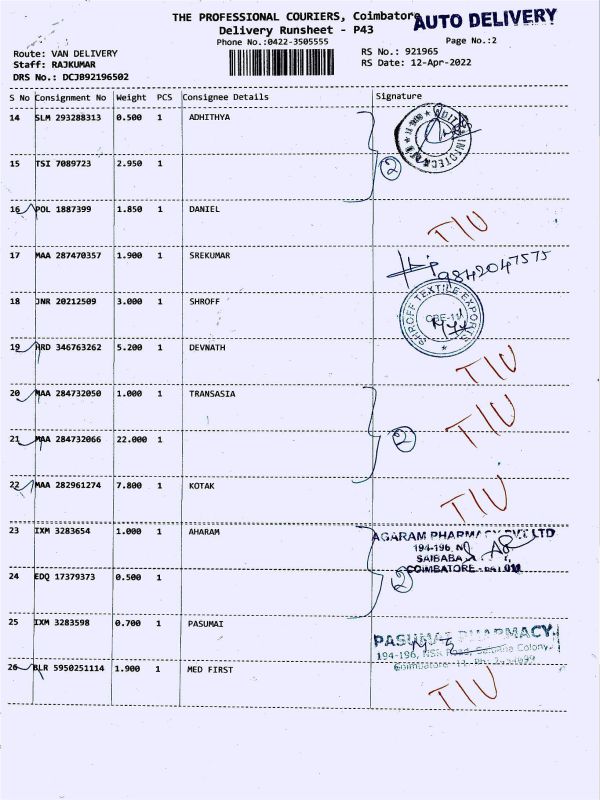 THE PROFESSIONAL COURIERS, Coimbatore
AUTO DELIVERY
Delivery Runsheet - P43
Phone No.:0422-3505555
Page No.:2
Route: VAN DELIVERY
RS No.: 921965
Staff: RAJKUMAR
RS Date: 12-Apr-2022
DRS No.: DCJB92196502
S No Consignment No Weight PCS Consignee Details Signature
14 SLM 293288313 0.500 1 ADHITHYA
2
15 TSI 7089723 2.950 1
16 POL 1887399 1.850 1 DANIEL
T/U
17 MAA 287470357 1.900 1 SREKUMAR
9842047575
18 JNR 20212509 3.000 1 SHROFF
SHROFF TEXTILE EXPORTS
CBE-11
19 HRD 346763262 5.200 1 DEVNATH
T/U
20 MAA 284732050 1.000 1 TRANSASIA
T/U
21 MAA 284732066 22.000 1
2
22 MAA 282961274 7.800 1 KOTAK
T/U
23 IXM 3283654 1.000 1 AHARAM
AGARAM PHARMACY PVT LTD
194-196,
SAIBABA
COIMBATORE - 641 011
24 EDQ 17379373 0.500 1
2
25 IXM 3283598 0.700 1 PASUMAI
PASUMAI PHARMACY
194-196, NSR Road, Saibaba Colony
Coimbatore-11. Ph:
26 BLR 5950251114 1.900 1 MED FIRST
T/U